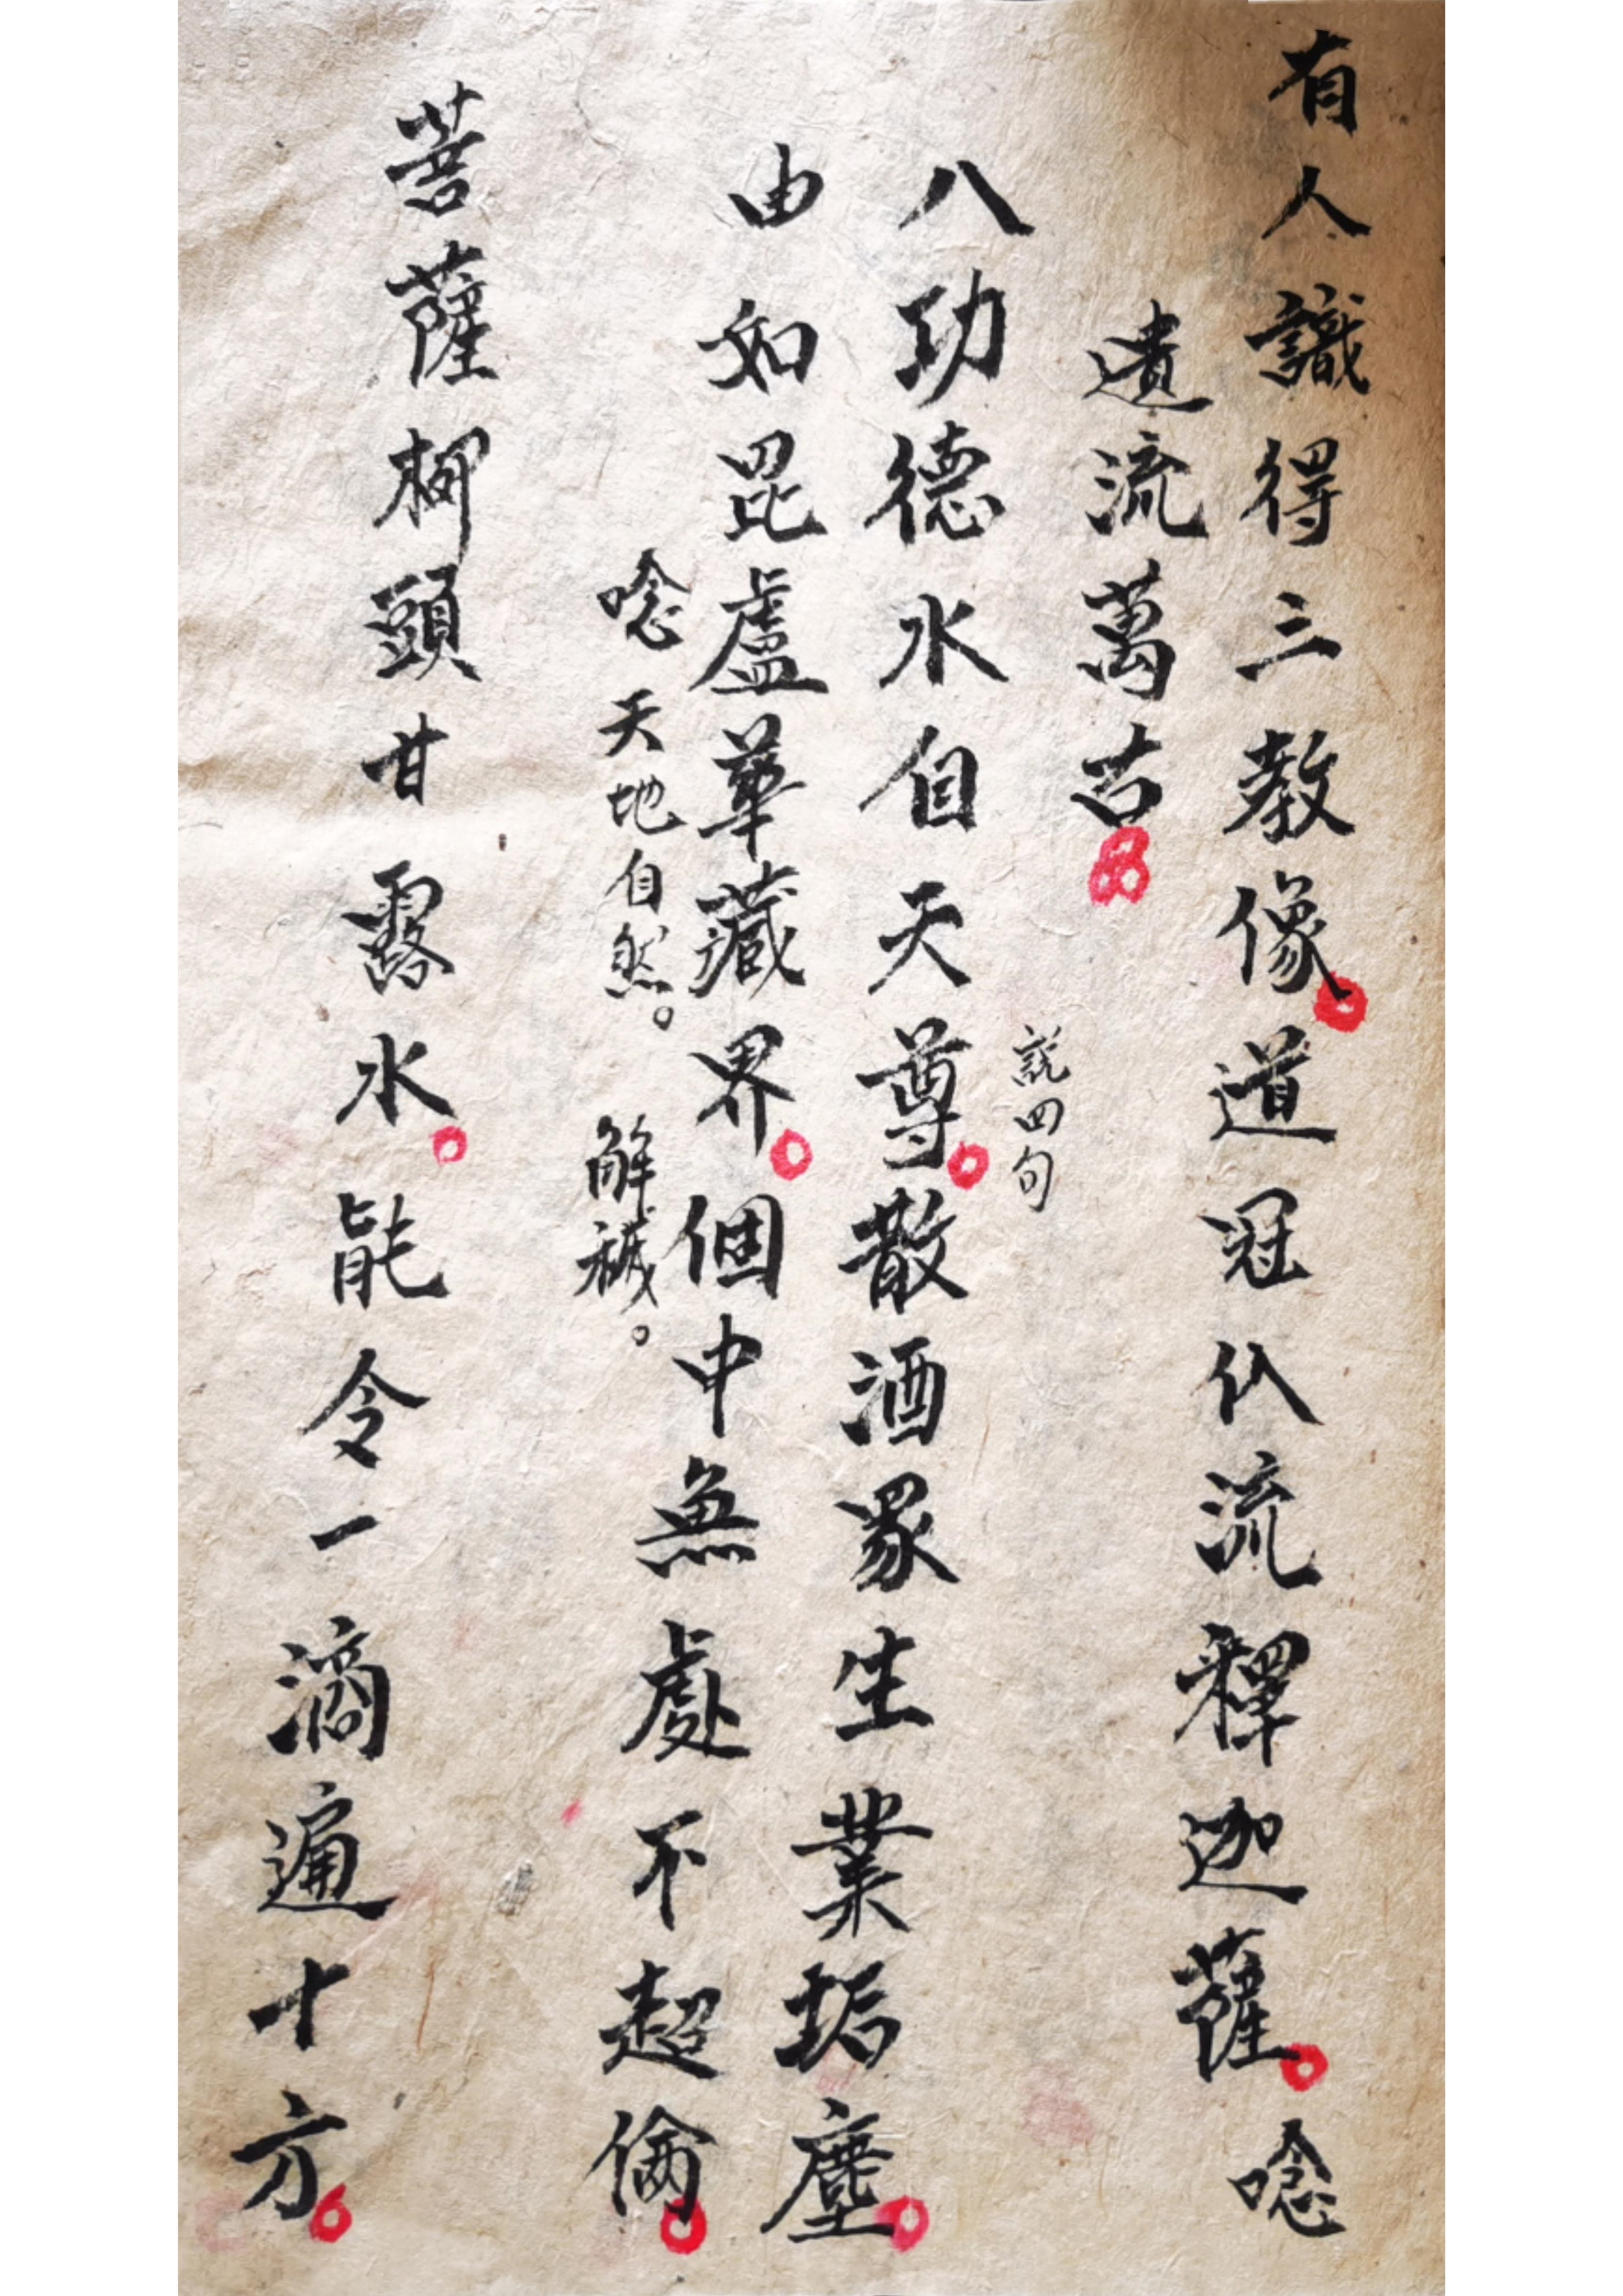 有人識得三教像。道冠仏流釋迦薩。唸
遺流萬古
說四句
八功德水自天尊。散酒眾生業垢塵。
由如毘盧華藏界。個中無處不超倫。
唸天地自然。解穢。
菩薩柳頭甘露水。能令一滴遍十方。